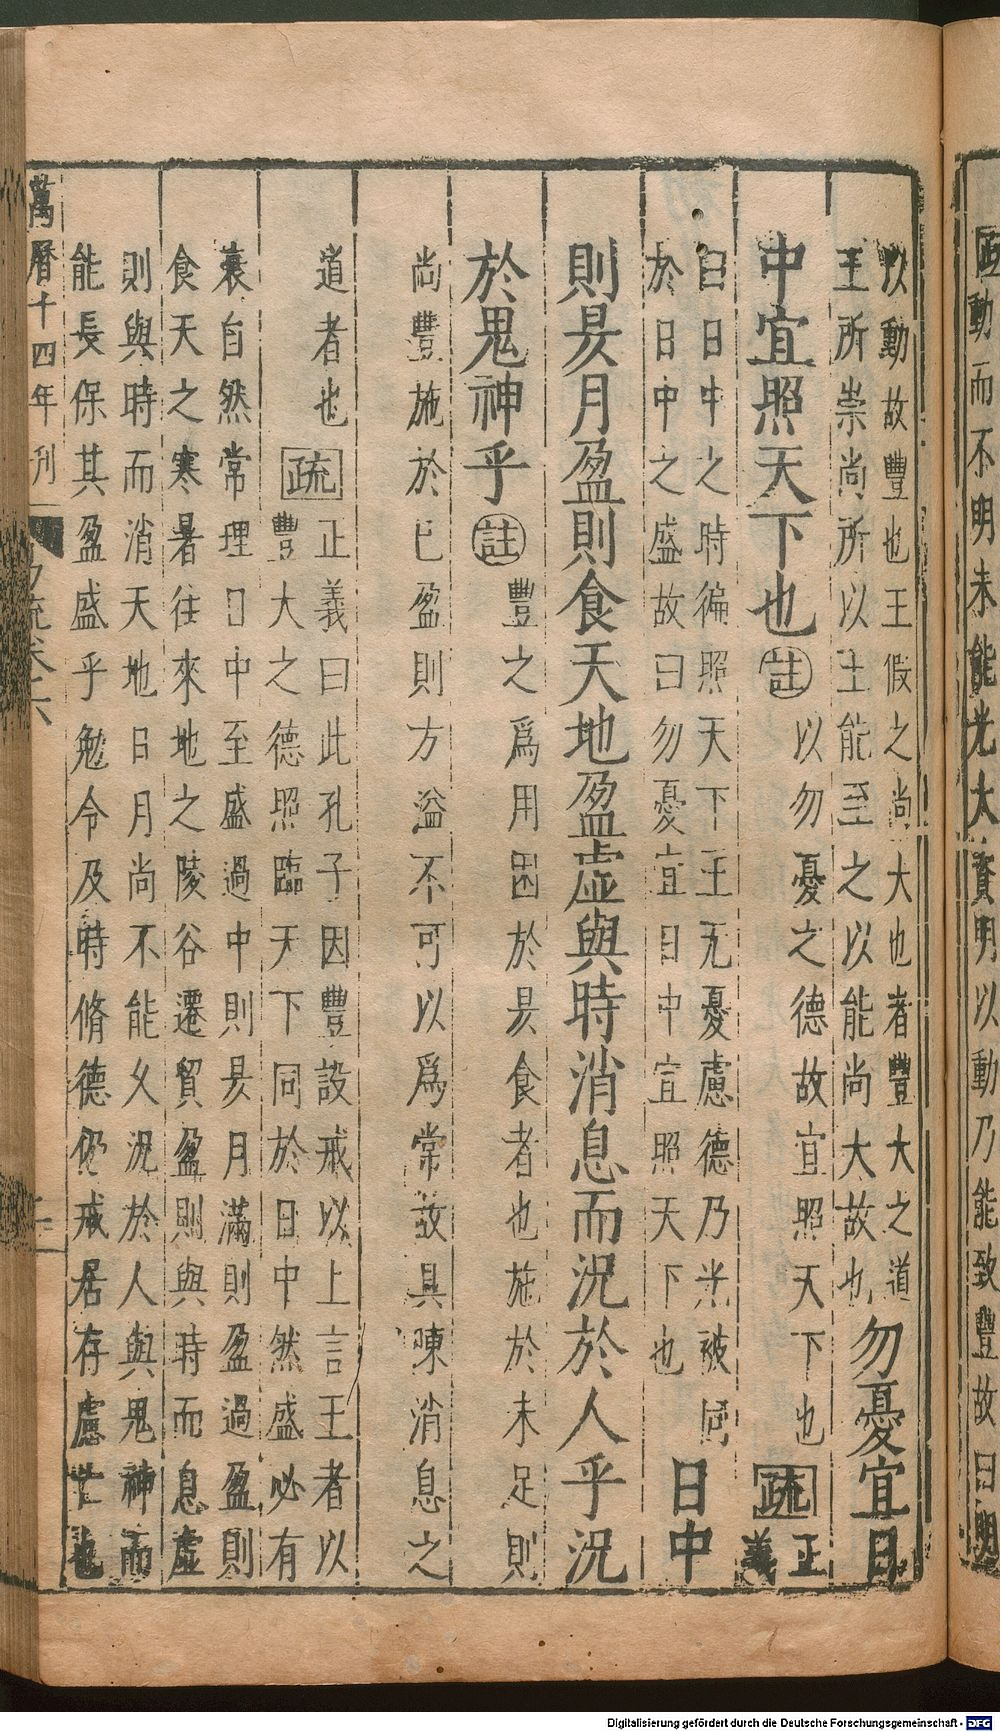 動而不明未能光大資明以動乃能致豐故曰明
以動故豐也王假之尚大也者豐大之道
王所崇尚所以王能至之以能尚大故也
勿憂宜日
中宜照天下也
註
以勿憂之德故宜照天下也
疏
正義
曰日中之時徧照天下王无憂慮德乃光被同
於日中之盛故曰勿憂宜日中宜照天下也
日中
則昃月盈則食天地盈虛與時消息而況於人乎況
於鬼神乎
註
豐之爲用困於昃食者也施於未足則
尚豐施於已盈則方溢不可以爲常故具陳消息之
道者也
疏
正義曰此孔子因豐設戒以上言王者以
豐大之德照臨天下同於日中然盛必有
衰自然常理日中至盛過中則昃月滿則盈過盈則
食天之寒暑往來地之陵谷遷貿盈則與時而息虛
則與時而消天地日月尚不能久況於人與鬼神而
能長保其盈盛乎勉令及時脩德仍戒居存慮亡也
萬曆十四年刊
易疏卷六
Digitalisierung gefördert durch die Deutsche Forschungsgemeinschaft - DFG